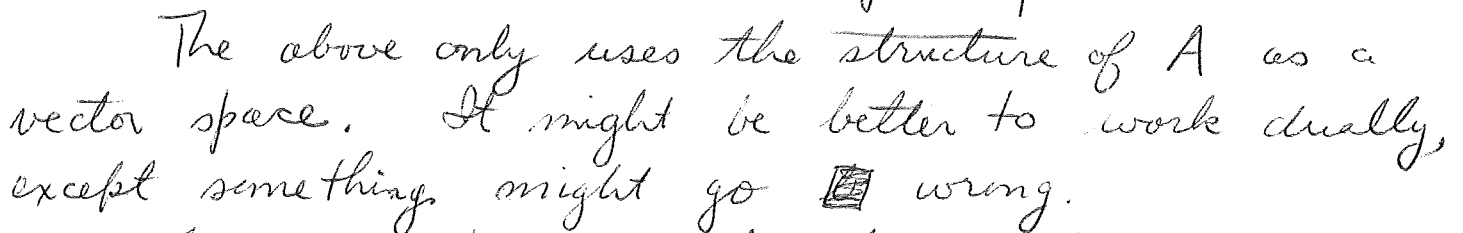 The above only uses the structure of A as a
vector space. It might be better to work dually,
except something might go wrong.